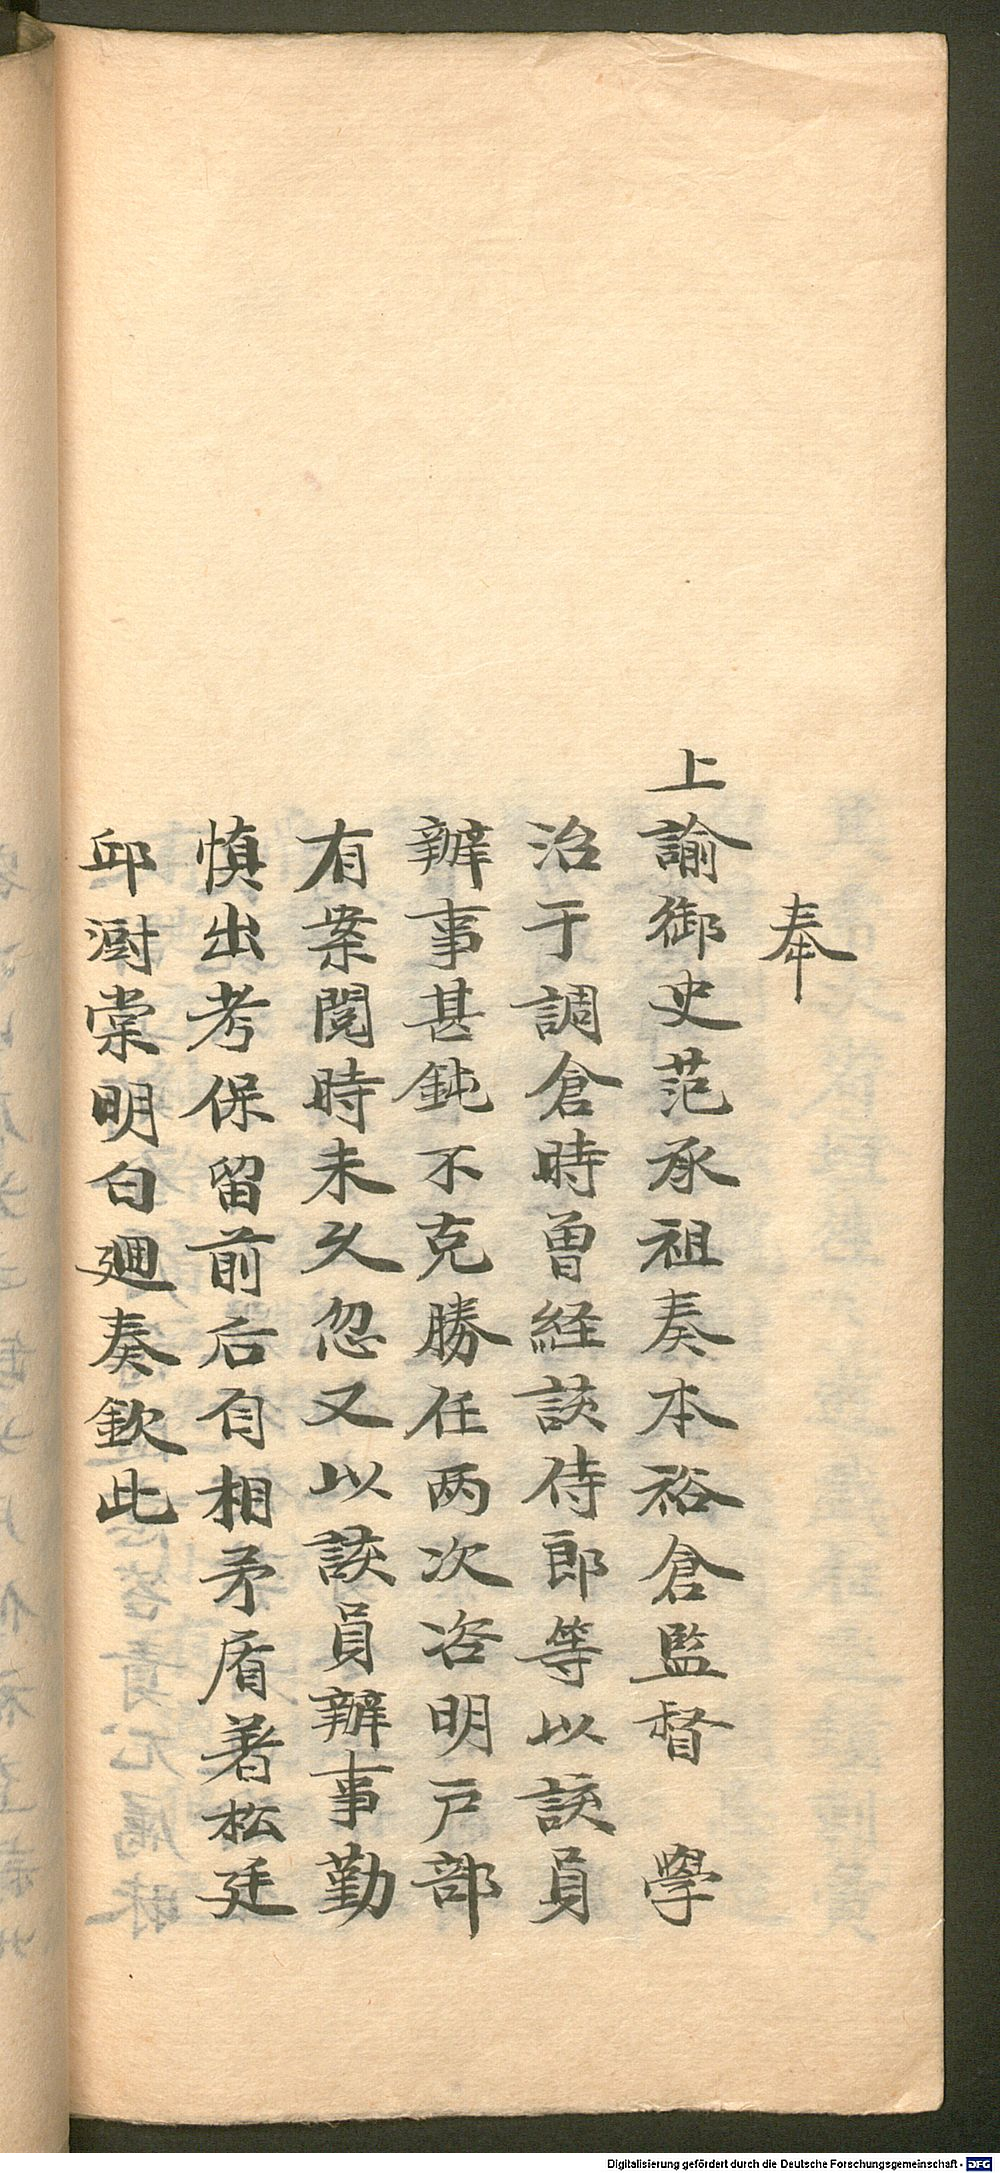 奉
上諭御史范承祖奏本裕倉監督　學
治于調倉時曾経該侍郎等以該員
辦事甚鈍不克勝任两次咨明戸部
有案閲時未久忽又以該員辦事勤
慎出考保留前后自相矛盾著松廷
邱澍棠明白廻奏欽此
Digitalisierung gefördert durch die Deutsche Forschungsgemeinschaft - DFG